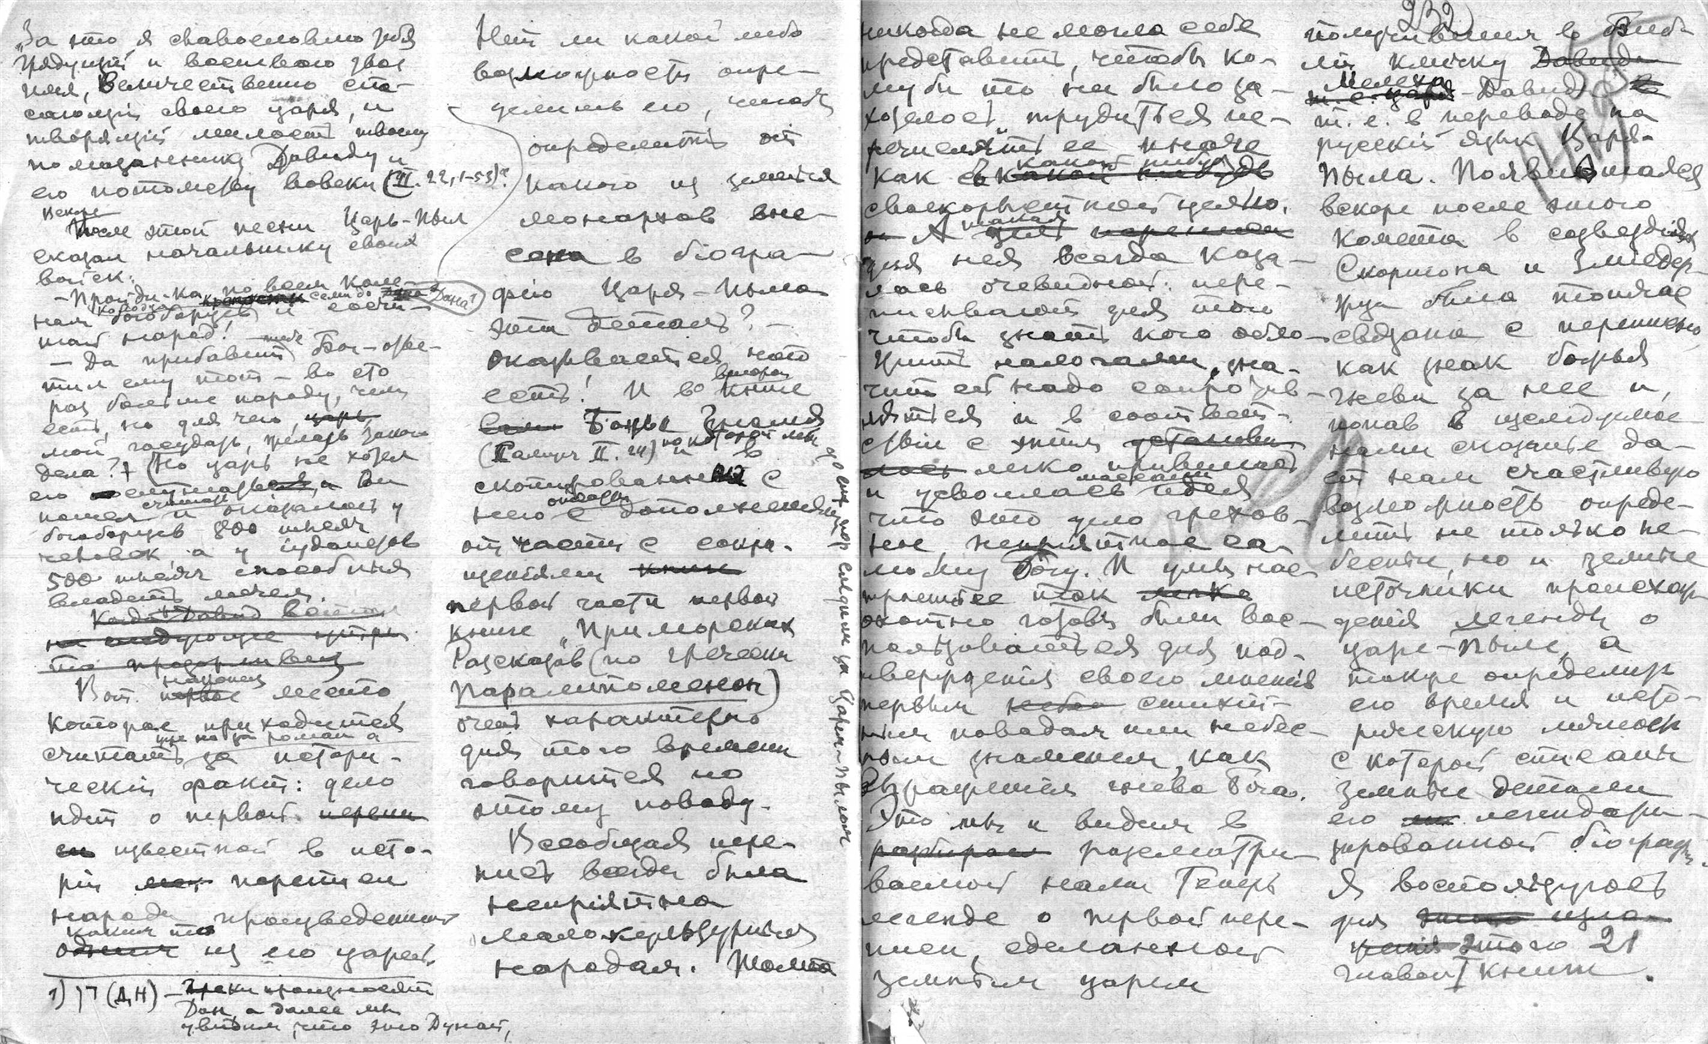 "За это я славословлю тебя
грядущій и воспеваю твое
имя, величественно спа-
сающій своего царя, и
творящій милость твоему
помазаннику Давиду и
его потомству вовеки (II. 22, 1-55)
Вскоре
после этой песни Царь-Пыл
сказал начальнику своих
войск:
-Пройди-ка по всем коле-
нам богоборцев и сочи-
тай народ!
— Да прибавит тебе Бог-отве-
тил ему тот — во сто
раз больше народу, чем
есть, но для чего, царь,
мой государь, желаешь такого
дела? (Но царь не хотел
его
пошел и оказалось у
богоборцев 800 тысяч
человек а у
500 тысяч способных
владеть мечем.
Когда Давид встал
на следующее утро
Вот наконец место,
которое приходится
считать за истори-
ческій факт: дело
идет о первой
известной в исто-
ріи переписи
народа произведенной
каким то
одним из его царей.
1) דן (ДН) — Греки произносят
Дан, а далее мы
увидим, что это Дунай,
Нет ли какой либо
возможности опре-
делить его, чтобы
определить от
какого из земных
монархов вне-
сена в біогра-
фію Царя-Пыла
эта деталь? —
оказывается, что
есть! И во второй книге
Божье Знамя
(Самуил II. 24) и в
скопированной с
него с дополненіями
от части с сокра-
щеніями
первой части первой
книги "Приморских
Рассказов" (по гречески
Паралипоменон)
очень характерно
для того времени
говорится по
этому поводу.
Всеобщая пере-
пись всегда была
непріятна
мало культурным
народам. Толпа
до сих пор следили за Царем Пылом
никогда не могла себе
представить, чтобы ко-
му бы то ни было за-
хотелось трудиться пе-
речислять ее иначе
как с какой нибудь
своекорыстной целью.
А такая
для нея всегда каза-
лась очевидной: пере-
писывают для того
чтобы знать кого обло-
жить налогами, зна-
чит ей надо сопротив-
ляться и в соответ-
ствіи с этим
легко прививалась
и усвоилась массами идея
что это дело грехов-
ное, непріятное са-
мому Богу. И умы нас-
троенные так
охотно готовы были вос-
пользоваться для под-
твержденія своего мненія
первым стихій-
ным поводом или небес-
ным знаменіем, как
выраженіем гнева Бога.
Это мы и видим в
разбираем рассматри-
ваемой нами теперь
легенде о первой пере-
писи, сделанной
земным царем
232
получившим в Биб-
ліи кличку Давида
Мелеха
т.е. царя - Давида
т.е. в переводе на
русскій язык Царя-
Пыла. Появившаяся
вскоре после этого
комета в созвездіях
Скорпіона и Змиедер-
жца была тотчас
связана с переписью,
как знак божья
гнева за нее и,
попав в
нами сказанье да-
ет нам счастливую
возможность опреде-
лить не только не-
бесные, но и земные
источники происхож-
денія легенды о
царе-Пыле, а
также определить
его время и исто-
рическую личность
с которой списаны
земные детали
его легендари-
зированной біографіи.
Я воспользуюсь
для
этого 21
главой I книги.